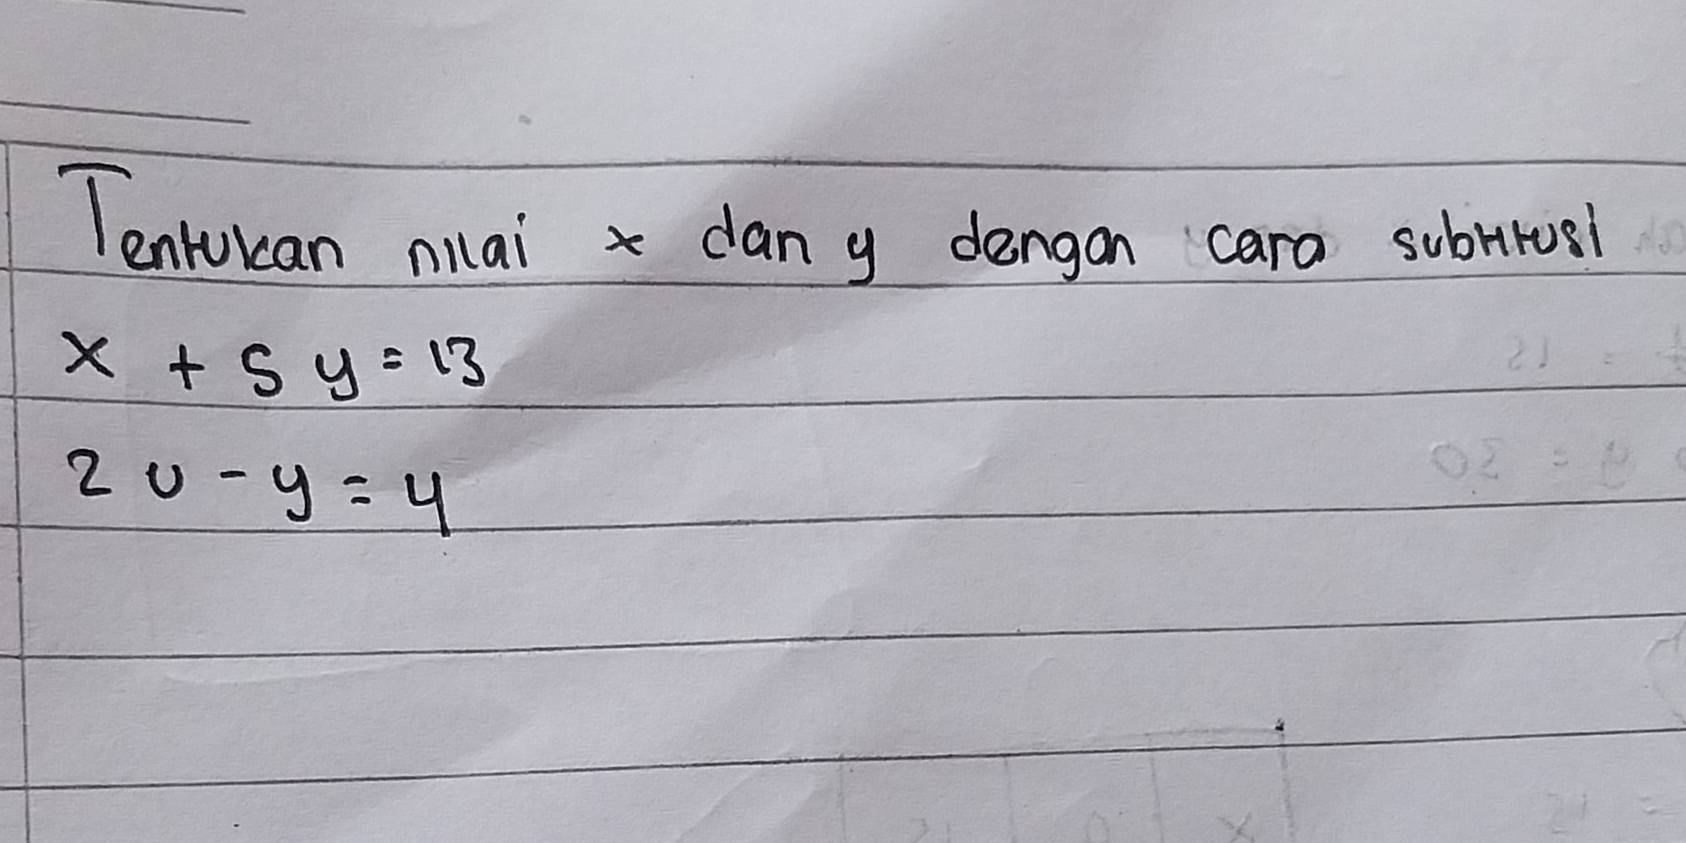 Tentukan nilai x dan y dengan cara subtitusi
x + 5 y = 13
2 u - y = 4